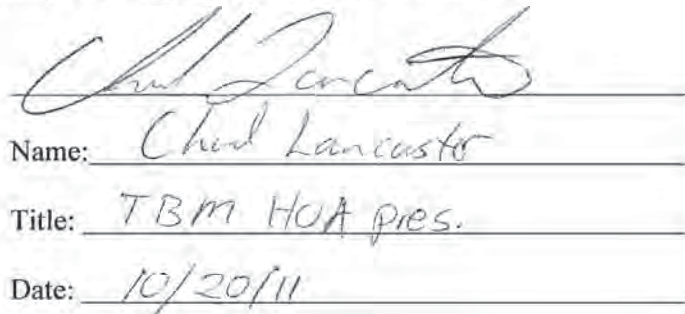 Chad Lancaster
Name: Chad Lancaster
Title: TBM HOA pres.
Date: 10/20/11